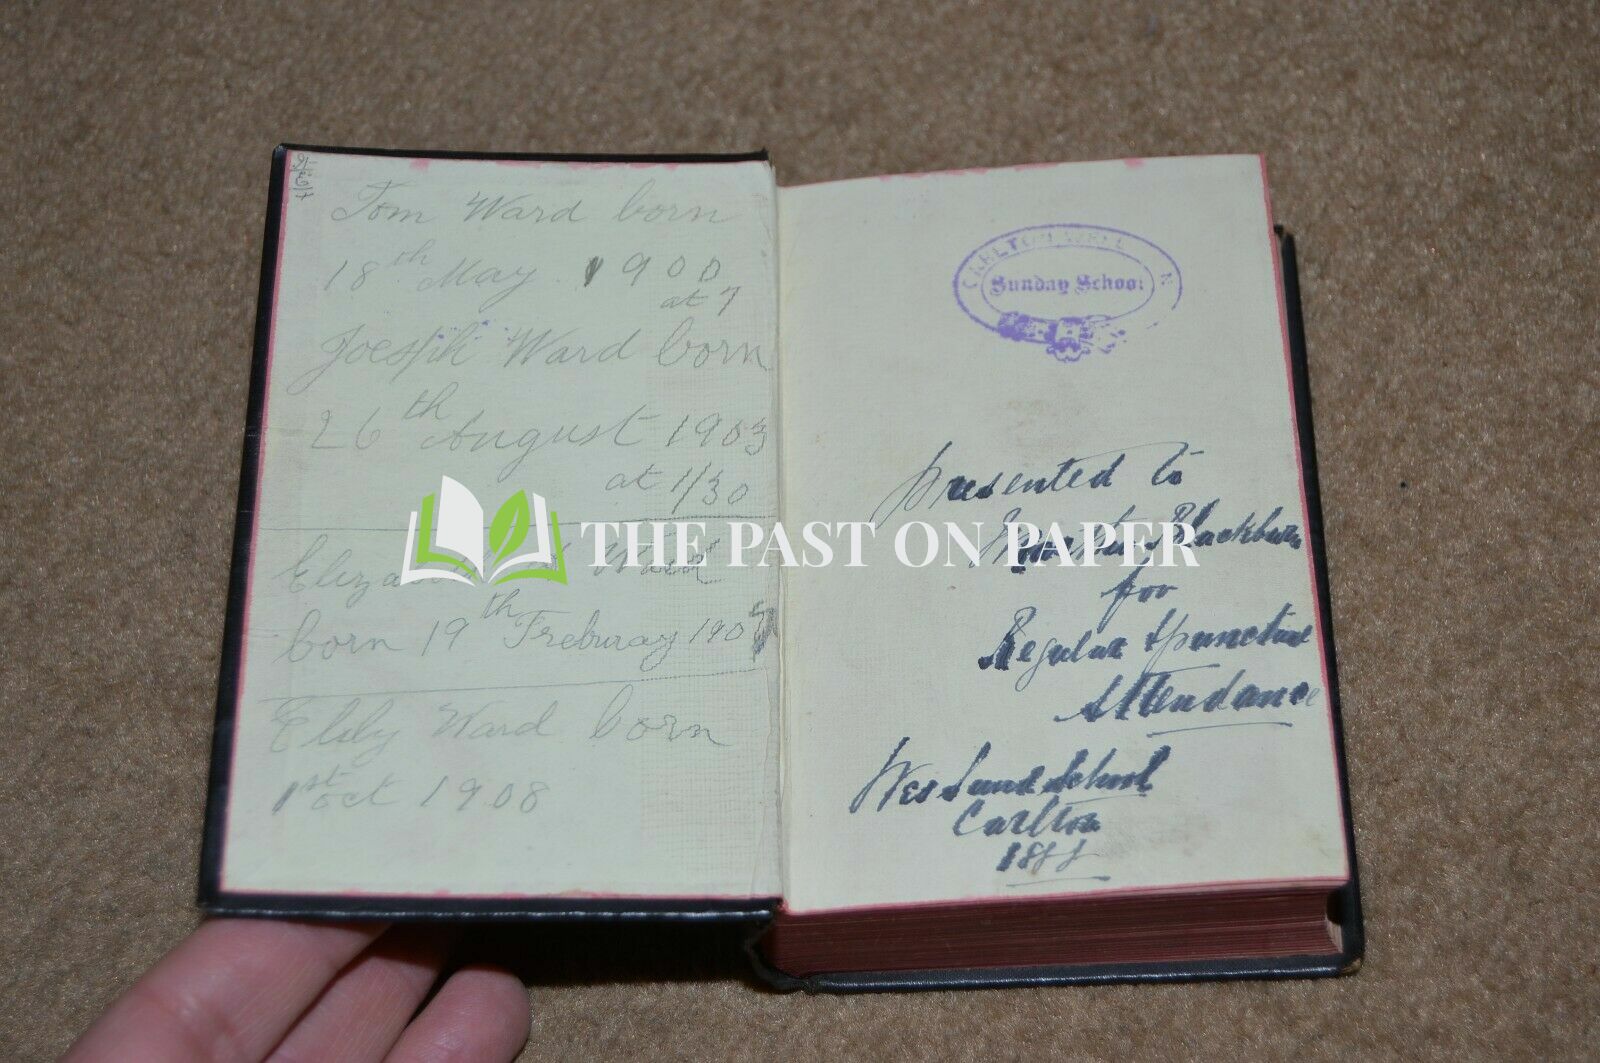 Tom Ward born
18th May 1900
at 7
Joesph Ward born
26th August 1903
at 1/30
Ward
born 19th Freburay 190
Ward born
1st Oct 1908
Sunday School
Presented to
Blackburn
for
Regular & punctual
Attendance
Wes Sund School
Carlton
THE PAST ON PAPER